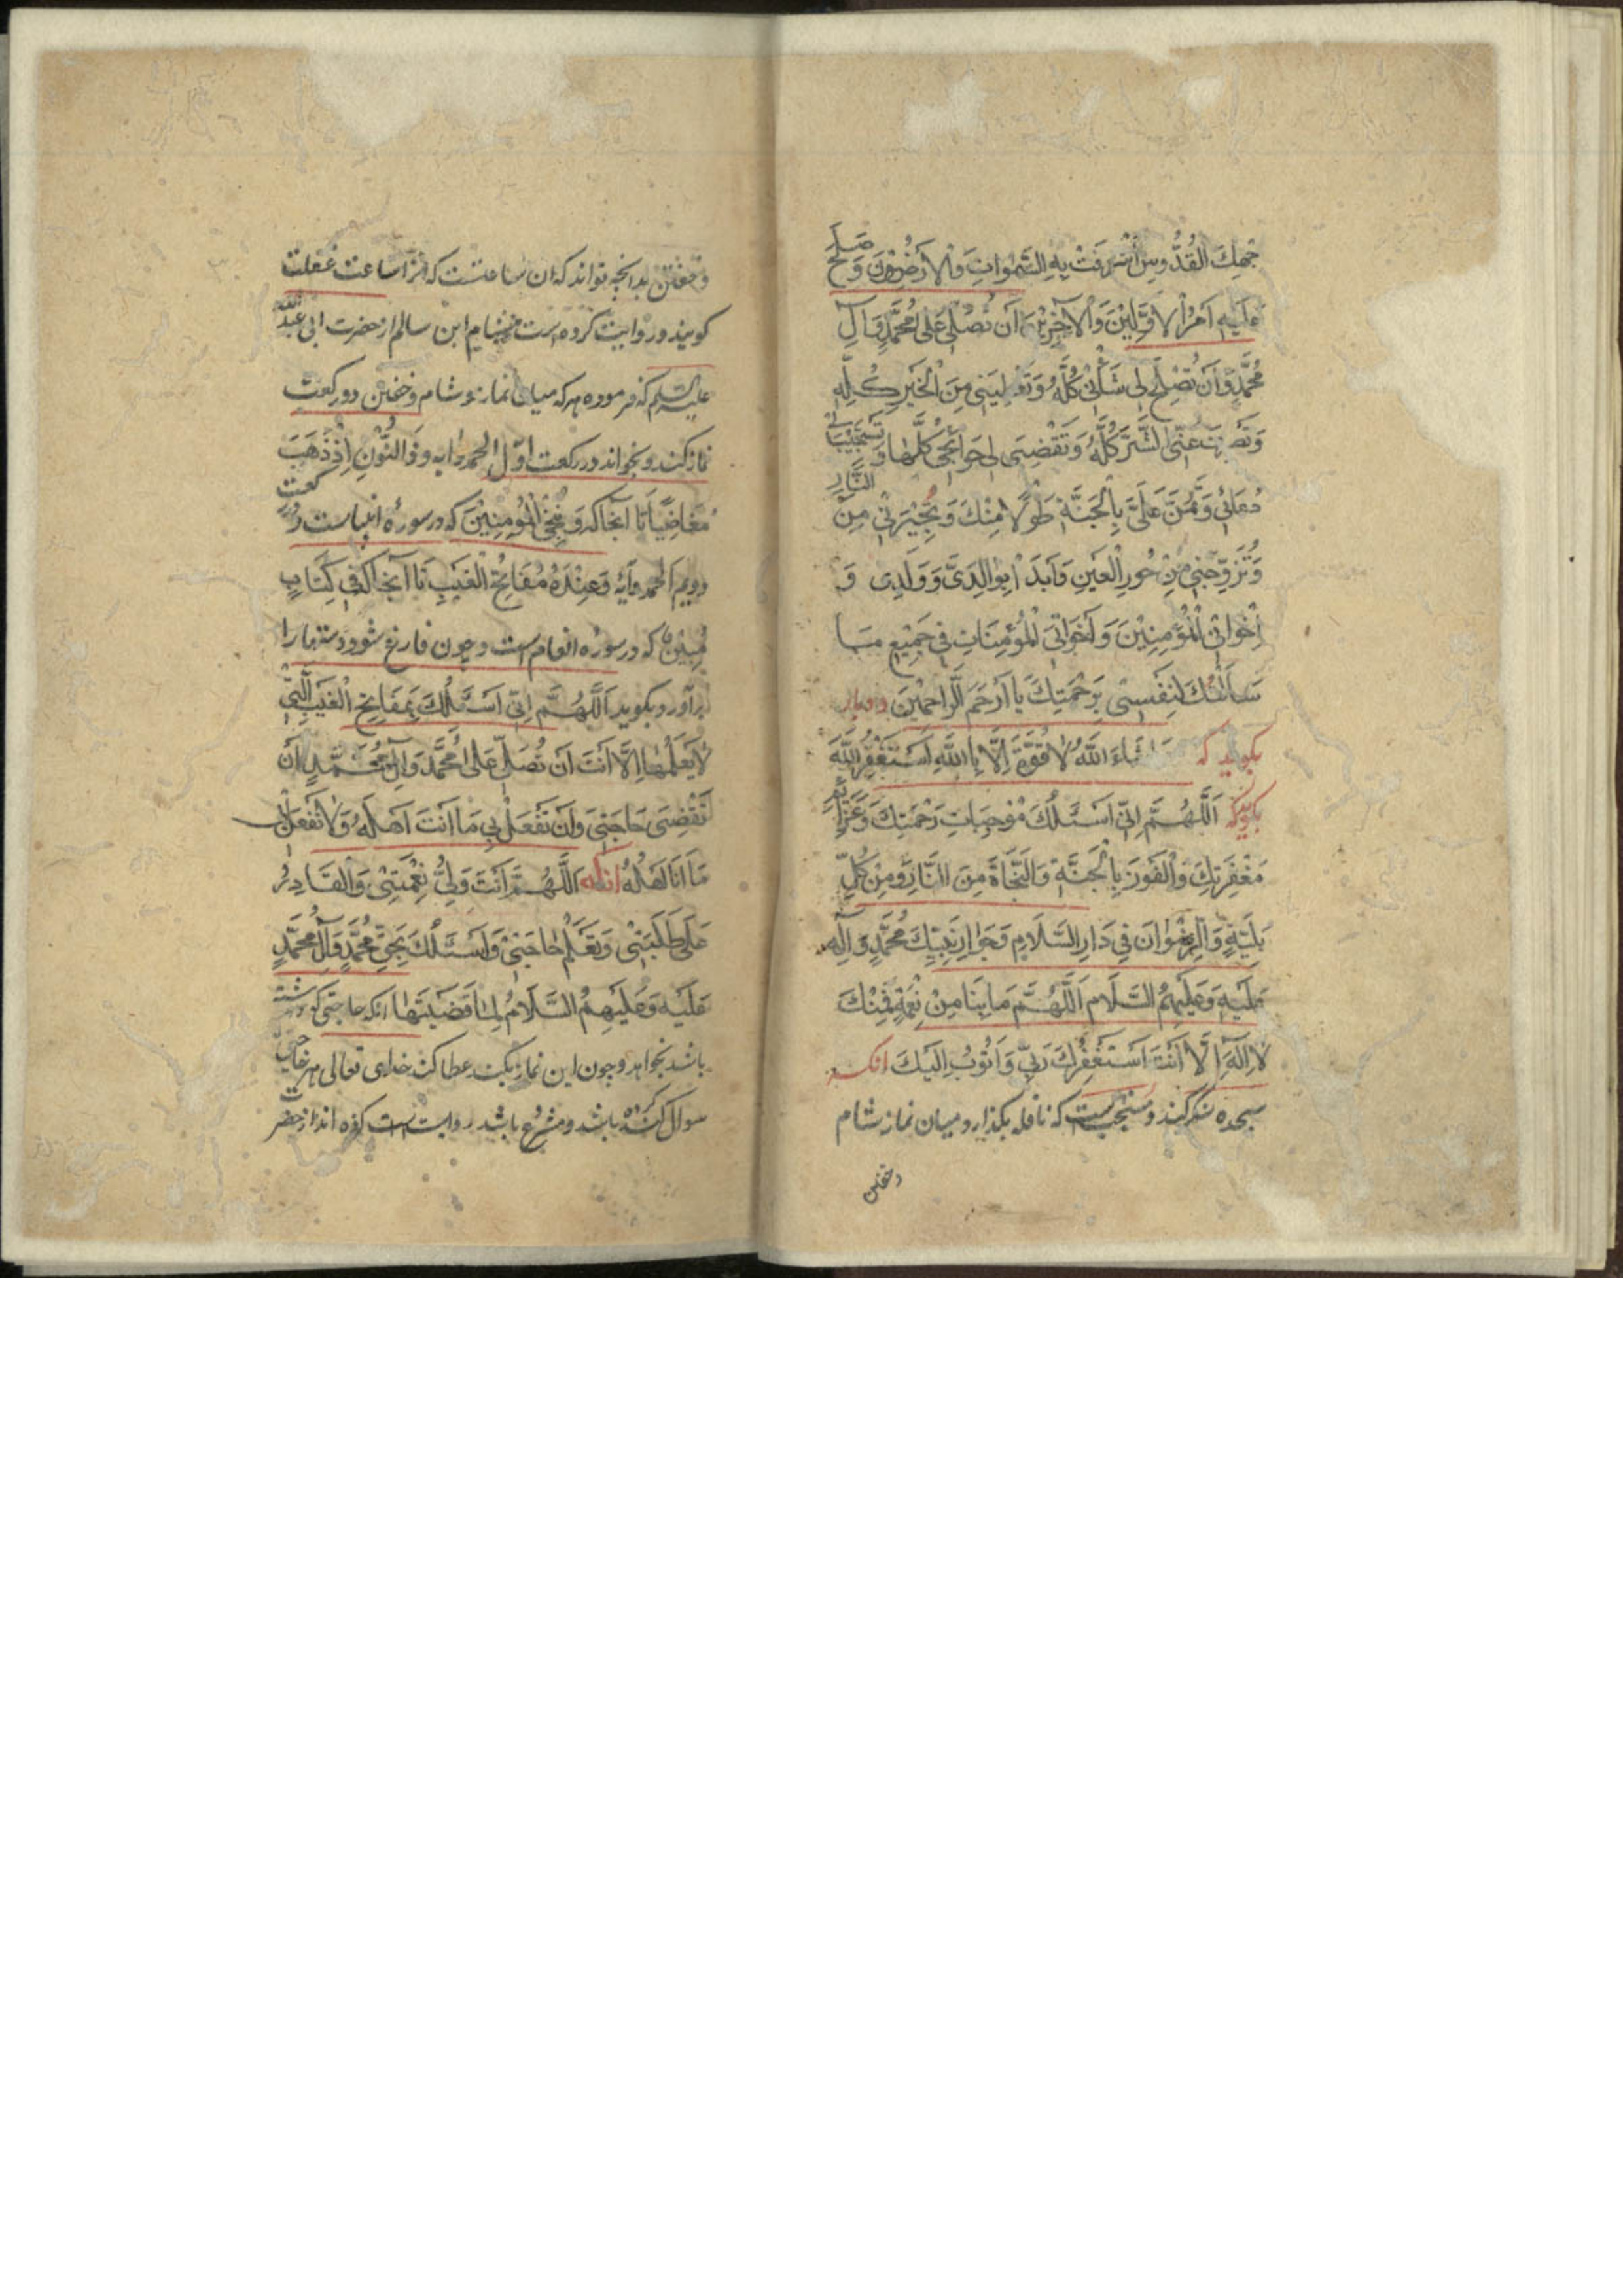 جهِكَ القُدُّوسِ أَشرَقَت بِهِ السَّمٰوَاتُ وَالْاَرَضُونَ وَصَلَحَ
عَلَيهِ اَمرُ الْاَوَّلِيْنَ وَالْآخِرِيْنَ اَن تُصَلِّيَ عَلىٰ مُحَمَّدٍ وَآلِ
مُحَمَّدٍ وَاَن تُصْلِحَ لِى شَأْنِى كُلَّهُ وَتُعْطِيَنِى مِنَ الْخَيرِ كُلِّهِ
وَتَصْرِفَ عَنِّى الشَّرَّ كُلَّهُ وَتَقْضِىَ لِى حَوَائِجِى كُلَّهَا وَتَستَجِيْبَ لِى
دُعَائِى وَتَمُنَّ عَلَىَّ بِالْجَنَّةِ طَوْلًا مِنْكَ وَتُجِيْرَنِى مِنَ النَّارِ
وَتُزَوِّجَنِى مِنْ حُورِ الْعِيْنِ وَابدَأ بِوَالِدَىَّ وَوَلَدِى وَ
اِخْوَانِى الْمُؤْمِنِيْنَ وَاَخَوَاتِىَ الْمُؤْمِنَاتِ فِى جَمِيْعِ مَا
سَاَلْتُكَ لِنَفسِىْ بِرَحْمَتِكَ يَا اَرْحَمَ الرَّاحِمِيْنَ
بگويد كه مَا شَاءَ اللّٰهُ لَا قُوَّةَ اِلَّا بِاللّٰهِ اَسْتَغْفِرُ اللّٰهَ
بگويد كه اَللّٰهُمَّ اِنِّى اَسْئَلُكَ مُوْجِبَاتِ رَحْمَتِكَ وَعَزَائِمَ
مَغْفِرَتِكَ وَالْفَوْزَ بِالْجَنَّةِ وَالنَّجَاةَ مِنَ النَّارِ وَمِنْ كُلِّ
بَلِيَّةٍ وَالرِّضْوَانَ فِى دَارِ السَّلَامِ وَجِوَارِ نَبِيِّكَ مُحَمَّدٍ وَآلِهِ
عَلَيْهِ وَعَلَيهِمُ السَّلَام اَللّٰهُمَّ مَا بِنَا مِنْ نِعْمَةٍ فَمِنْكَ
لَا اِلٰهَ اِلَّا اَنْتَ اَسْتَغْفِرُكَ رَبِّى وَاَتُوْبُ اِلَيْكَ انكه
سجده شكر كند و مستحبست كه نافله بگذارد ميان نماز شام
و خفتن
و خفتن بدانچه تواند كه ان ساعتست كه انرا ساعت غفلت
كويند و روايت كرده است هشام ابن سالم از حضرت ابى عبدالله
عليه السلم كه فرموده هر كه ميان نماز شام و خفتن دو ركعت
نماز كند و بخواند در ركعت اوّل الحمد و ايه وَذَا النُّوْنِ اِذْ ذَهَبَ
مُغَاضِبًا تا آنجا كه وَنُنْجِى الْمُؤْمِنِيْنَ كه در سوره انبياست و در ركعت
دويم الحمد و آيه وَعِنْدَهُ مَفَاتِحُ الْغَيْبِ تا آنجا كه فِى كِتَابٍ
مُبِيْنٍ كه در سوره انعام است و چون فارغ شود دستها را
برآورد و بگويد اَللّٰهُمَّ اِنِّى اَسْئَلُكَ بِمَفَاتِحِ الْغَيْبِ الَّتِى
لَا يَعْلَمُهَا اِلَّا اَنْتَ اَنْ تُصَلِّىَ عَلىٰ مُحَمَّدٍ وَآلِ مُحَمَّدٍ اَنْ
تَقْضِىَ حَاجَتِى وَاَنْ تَفْعَلَ بِى مَا اَنْتَ اَهْلُهُ وَلَا تَفْعَل بِى
مَا اَنَا اَهْلُهُ انكه اَللّٰهُمَّ اَنْتَ وَلِىُّ نِعْمَتِىْ وَالْقَادِرُ
عَلىٰ طَلِبَتِىْ وَتَعْلَمُ حَاجَتِىْ وَاَسْئَلُكَ بِحَقِّ مُحَمَّدٍ وَآلِ مُحَمَّدٍ
عَلَيْهِ وَعَلَيْهِمُ السَّلَامُ لَمَّا قَضَيْتَهَا انكه حاجتى كه داشته
باشد بخواهد و چون اين نماز بكند عطا كند خداى تعالى هر حاجتى
سوال كرده باشد و مشروع باشد روايت است كرده اند از حضرت